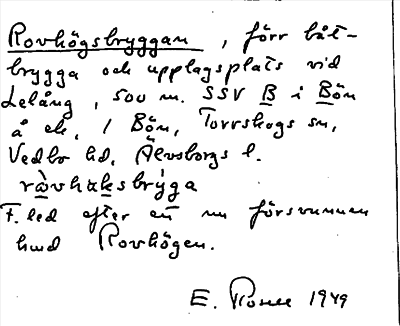 Rovhögsbryggan, förr båt-
brygga och upplagsplats vid
Lelång, 500 m. SSV B i Bön
å ek, 1 Bön, Torrskogs sn,
Vedbo hd, Älvsborgs l.
ràvhaksbrýga
F. led efter en nu försvunnen
hmd Rovhögen.
E. 1949